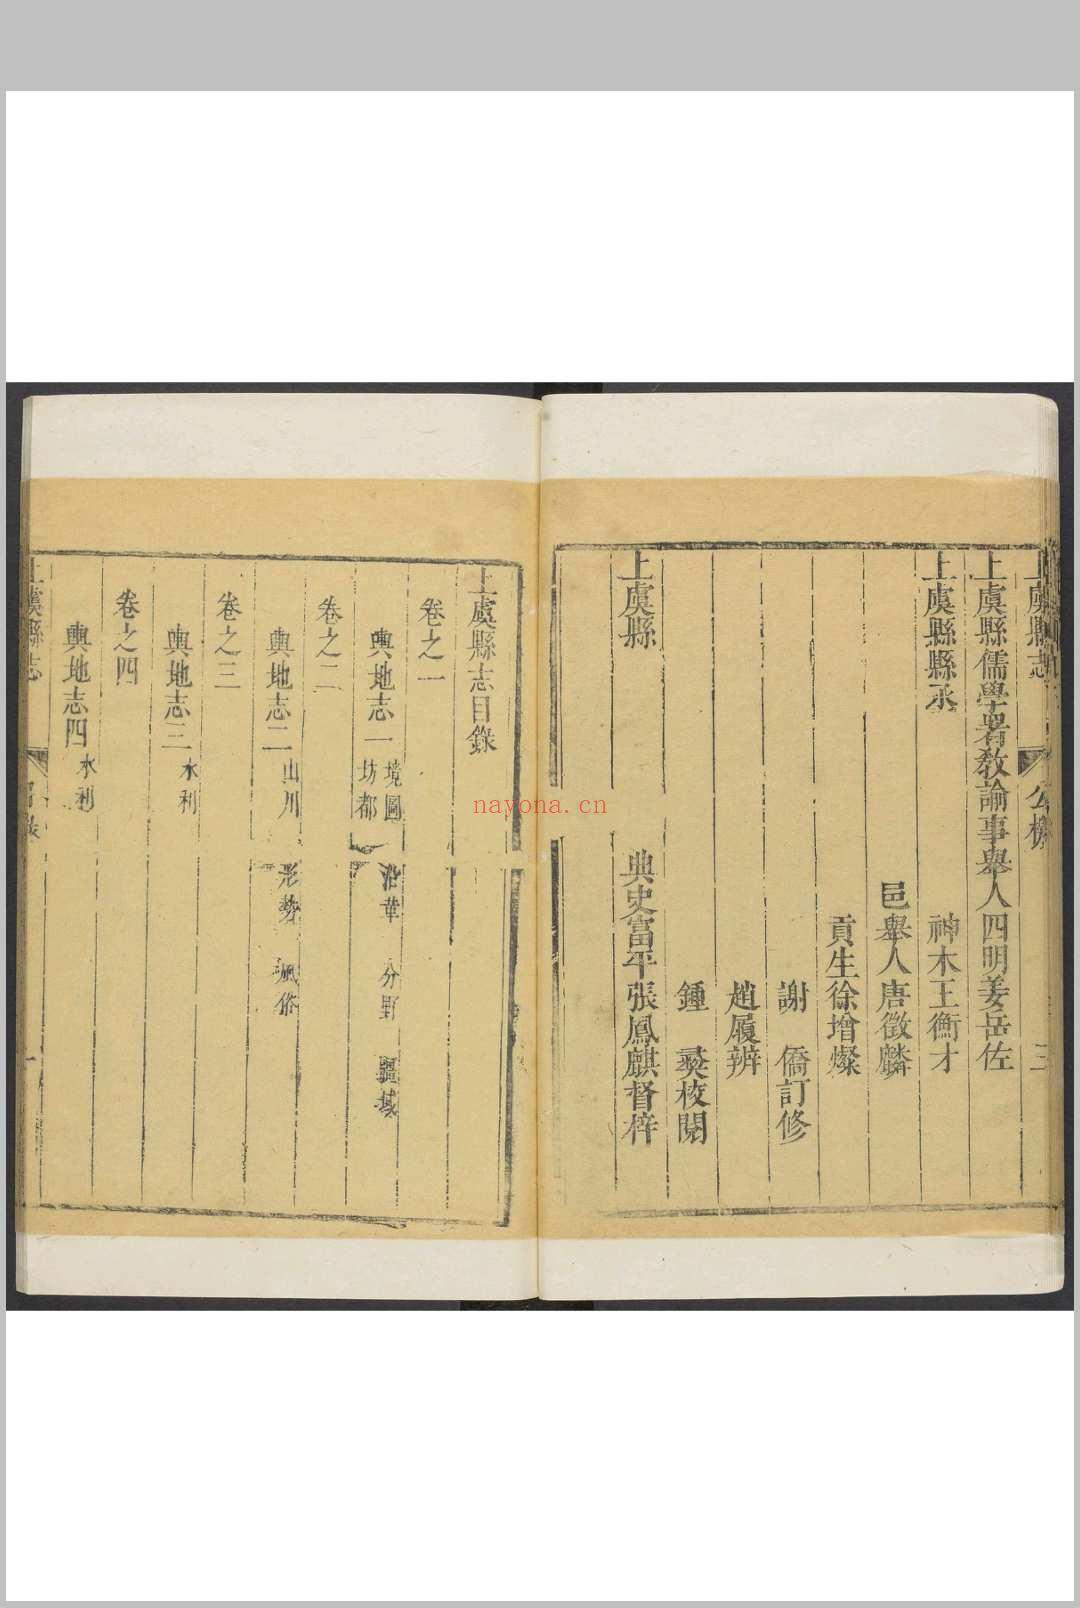 上虞縣志
公移
三
上虞縣儒學署教諭事舉人四明姜岳佐
上虞縣縣丞 神木王衡才
邑舉人唐徵麟
貢生徐增燦
謝 僑訂修
趙履辨
鍾 彛校閱
上虞縣 典史富平張鳳麒督梓
上虞縣志目錄
卷之一
輿地志一 境圖 沿革 分野 疆域
坊都
卷之二
輿地志二 山川 形勢 風俗
卷之三
輿地志三 水利
卷之四
輿地志四 水利
上虞縣志
目錄
一
nayona.cn